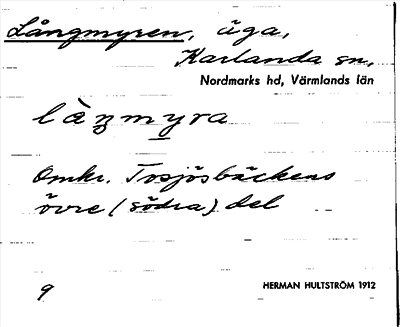 Långmyren, äga,
Karlanda sn,
Nordmarks hd, Värmlands län
làŋmyra
Omkr. Tosjösbäckens
övre (södra) del
9
HERMAN HULTSTRÖM 1912